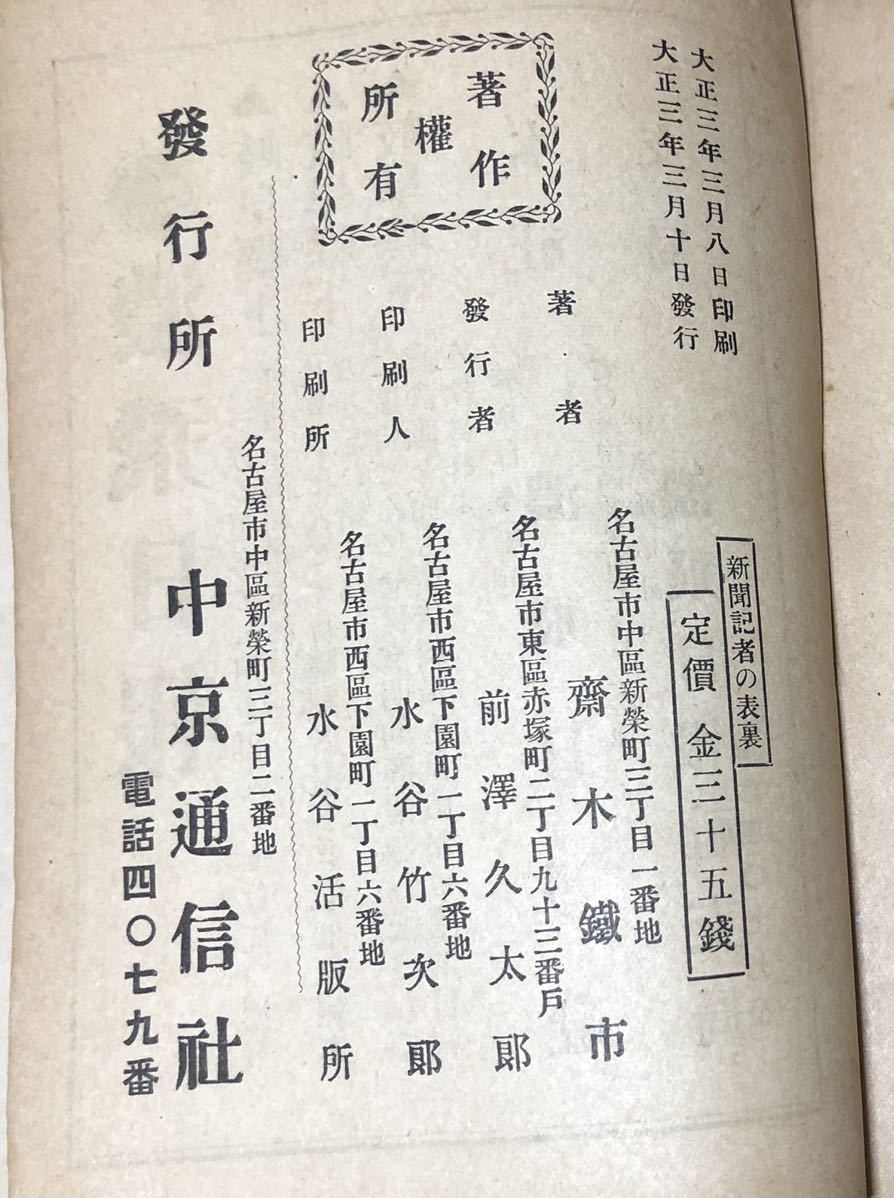 大正三年三月八日印刷
大正三年三月十日發行
新聞記者の表裏
定價 金三十五錢
著作
權
所有
著者
名古屋市中區新榮町三丁目一番地
齋木鐵市
發行者
名古屋市東區赤塚町二丁目九十三番戶
前澤久太郎
印刷人
名古屋市西區下園町一丁目六番地
水谷竹次郎
印刷所
名古屋市西區下園町一丁目六番地
水谷活版所
發行所
名古屋市中區新榮町三丁目二番地
中京通信社
電話四〇七九番